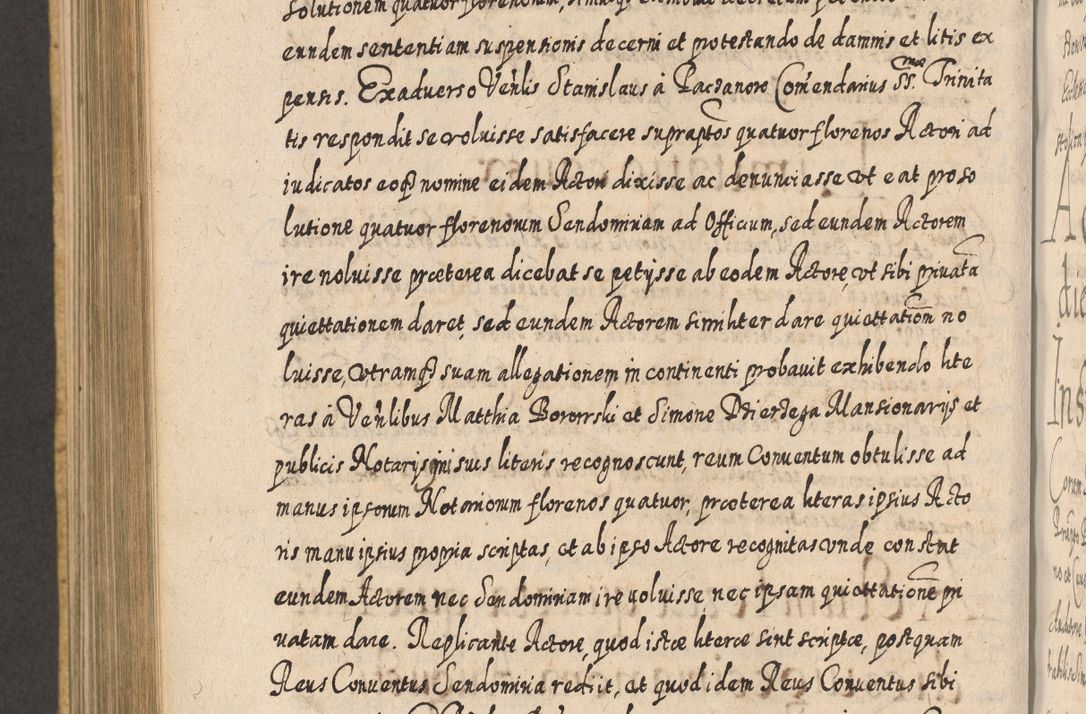 solutionem quatuor florenorum,
eundem sententiam suspensionis decerni et protestando de damnis et litis ex
pensis. Exaduerso Venlis Stanislaus à Paczanow Comendarius SS.mae Trinita
tis respondit se voluisse satisfacere supraptos quatuor florenos Actori ad
iudicatos eoq nomine eidem Actori dixisse ac denunciasse vt eat pro so
lutione quatuor florenorum Sendomiriam ad Officium, sed eundem Actorem
ire noluisse præterea dicebat se petijsse ab eodem Actore, vt sibi priuata
quiettationem daret, sed eundem Actorem similiter dare quiettation no
luisse, vtramq suam allegationem in continenti probauit exhibendo lite
ras à Venlibus Matthia Borowski et Simone Dzierzega Mansionarijs et
publicis Notarijs qui suis literis recognoscunt, reum Conuentum obtulisse ad
manus ipsorum Notariorum florenos quatuor, præterea literas ipsius Acto
ris manu ipsius propria scriptas, et ab ipso Actore recognitas vnde constat
eundem Actorem nec Sendomiriam ire voluisse, nec ipsam quiettatione pri
uatam dare. Replicante Actore, quod istæ literæ sint scriptæ, postquam
Reus Conuentus Sendomiria rediit, et quod idem Reus Conuentus sibi